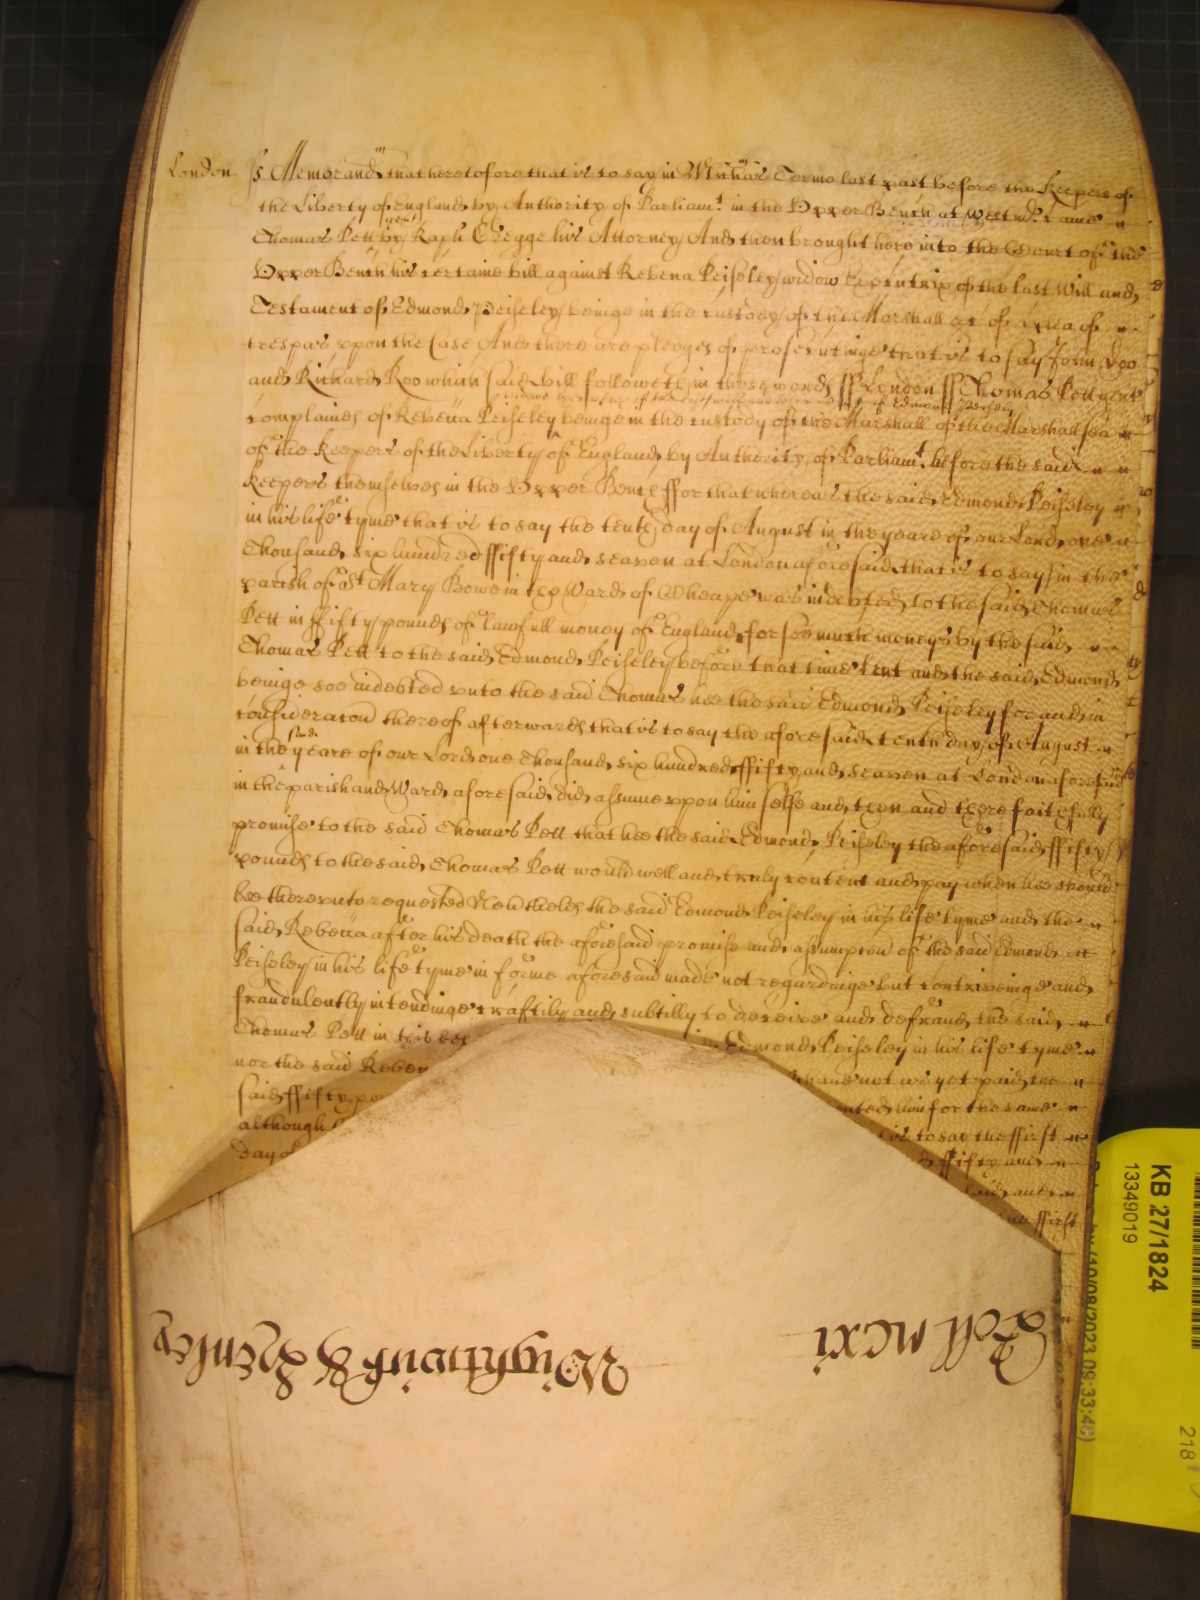 London ss Memorand that heretofore that is to say in Michas Terme last past before the Keepers of
the Liberty of England by Authority of Parliamt in the Upper Bench at Westmr Came
Thomas Pett gent by Raph Cregge his Attorney And then brought here into the Court of the
Upper Bench his certaine bill against Rebecca Peiseley widow Executrix of the last Will and
Testament of Edmond Peiseley beinge in the custody of the Marshall &c of a plea of
trespas upon the Case And there are pledges of prosecutinge that is to say John Doo
and Richard Roo which said bill followeth in these words ss London ss Thomas Pett gent
widowe Executrix of the last will and testament of Edmond Peiseley
complaines of Rebecca Peiseley beinge in the custody of the Marshall of the Marshallsea
of the Keepers of the Liberty of England by Authority of Parliamt before the said
Keepers themselves in the Upper Bench ffor that whereas the said Edmond Peiseley
in his life tyme that is to say the tenth day of August in the yeare of our Lord one
Thousand six hundred ffifty and seaven at London aforesaid that is to say in the
parish of St Mary Bowe in the Ward of Cheape was indebted to the said Thomas
Pett in ffifty pounds of lawfull money of England for soe much moneys by the said
Thomas Pett to the said Edmond Peiseley before that time lent and the said Edmond
beinge soe indebted unto the said Thomas hee the said Edmond Peiseley for and in
consideracon thereof afterwards that is to say the aforesaid tenth day of August
in the said yeare of our Lord one Thousand six hundred ffifty and seaven at London aforesaid
in the parish and Ward aforesaid did assume upon him selfe and then and there faithfully
promise to the said Thomas Pett that hee the said Edmond Peiseley the aforesaid ffifty
pounds to the said Thomas Pett would well and truly content and pay when hee should
bee thereunto requested Neverthelesse the said Edmond Peiseley in his life tyme and the
said Rebecca after his death the aforesaid promise and assumpcon of the said Edmond
Peiseley in his life tyme in forme aforesaid made not regardinge but contriveinge and
fraudulently intendinge craftily and subtilly to deceive and defraud the said
Thomas Pett in this beh Edmond Peiseley in his life tyme
nor the said Rebec have not as yet paid the
said ffifty po nted him for the same
although is to say the ffirst
day of ffifty and
said and
the ffirst
Wightwick &
Roll mcxi
KB 27/1824
13349019
(10/08/2023 09:33:48)
218